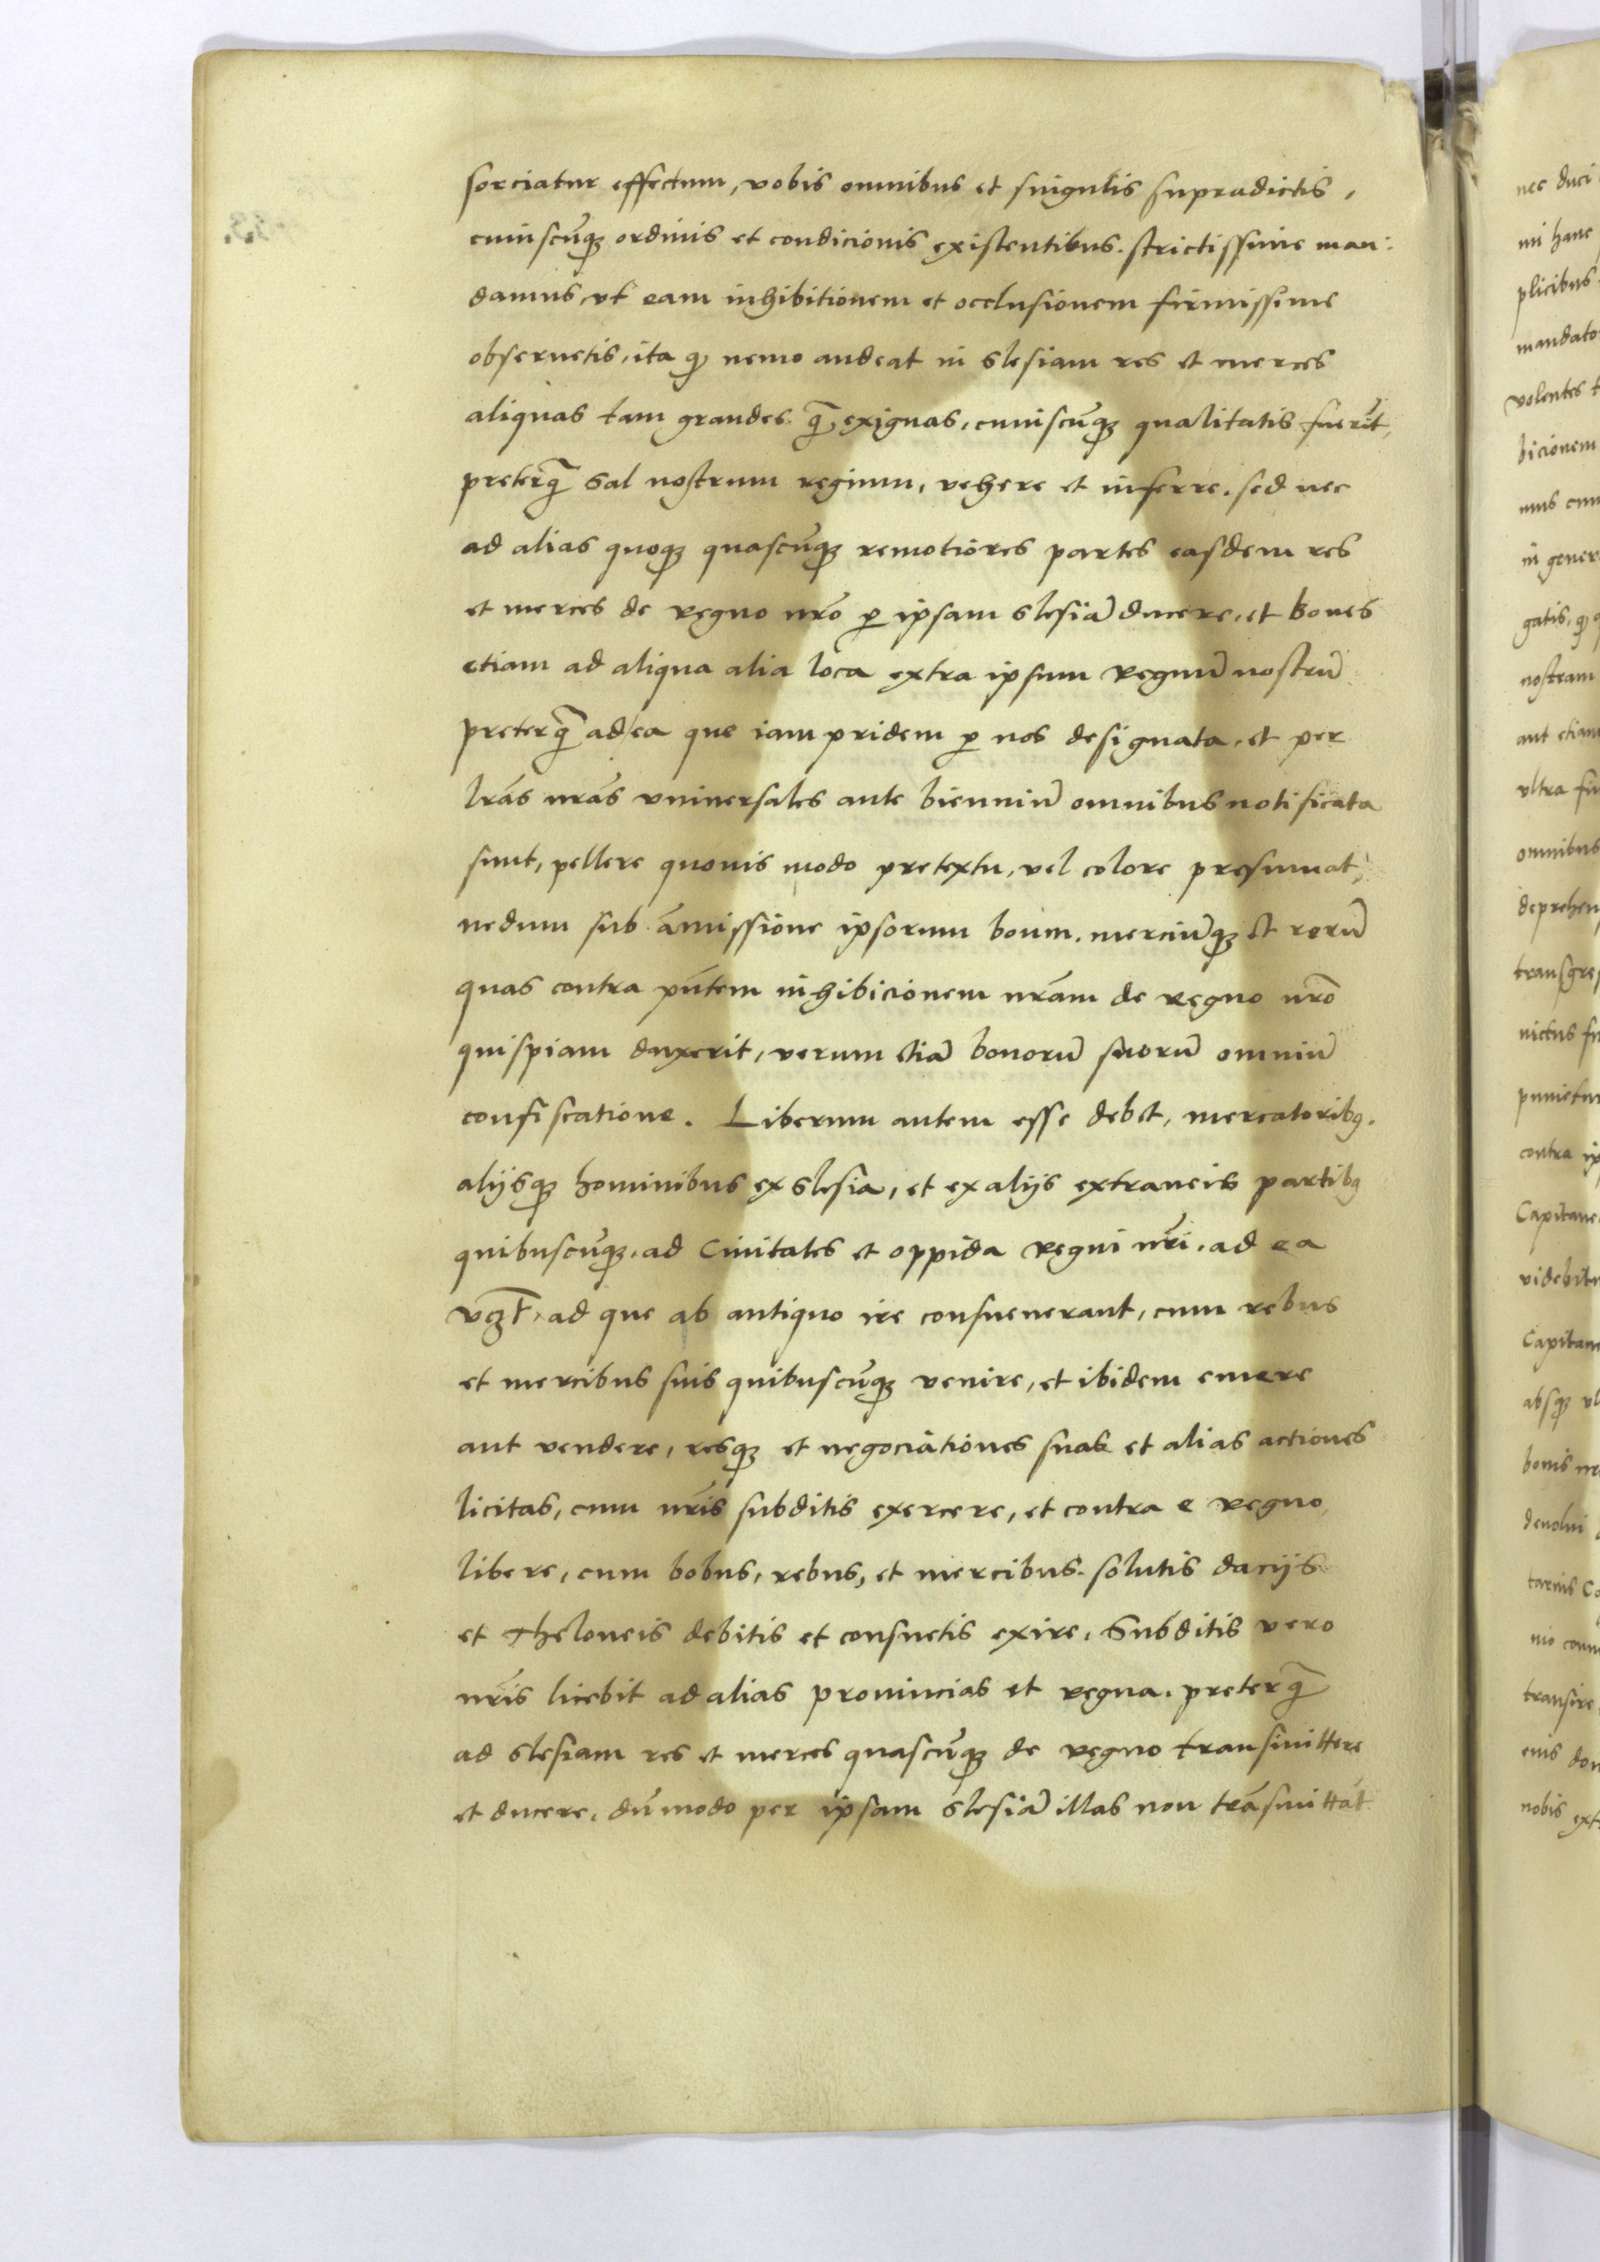 sorciatur effectum, vobis omnibus et singulis supradictis,
cuiuscūq₃ ordinis et condicionis existentibus. strictissime man:
damus, vt eam inhibitionem et occlusionem firmissime
obseruetis, ita qꝫ nemo audeat in slesiam res et merces
aliquas tam grandes. q̄ exiguas, cuiuscūqꝫ qualitatis fuerīt,
preterq̄ sal nostrum regium, vehere et inferre. sed nec
ad alias quoqꝫ quascūqꝫ remotiores partes easdem res
et merces de regno nr̄o ꝑ ipsam slesiā ducere, et boues
etiam ad aliqua alia loca extra ipsum regnū nostrū
preterq̄ ad ea que iam pridem ꝑ nos designata, et per
lr̄as nr̄as vniuersales ante bienniū omnibus notificata
sunt, pellere quouis modo pretextu, vel colore presumat,
nedum sub āmissione ipsorum boum. merciūqꝫ et rerū
quas contra pn̄tem inhibicionem nr̄am de regno nr̄o
quispiam duxerit, verum etiā bonorū suorū omniū
confiscatione. Liberum autem esse debet, mercatoribꝫ.
alijsqꝫ hominibus ex slesia, et ex alijs extraneis partibꝫ
quibuscūqꝫ, ad Ciuitates et oppida regni nr̄i, ad ea
vꝫt̄, ad que ab antiquo ire consueuerant, cum rebus
et mercibus suis quibuscūqꝫ venire, et ibidem emere
aut vendere, resqꝫ et negociationes suas et alias actiones
licitas, cum nr̄is subditis exercere, et contra e regno
libere, cum bobus, rebus, et mercibus. solutis dacijs
et Theloneis debitis et consuetis exire. Subditis vero
nr̄is licebit ad alias prouincias et regna. preterq̄
ad slesiam res et merces quascūqꝫ de regno transmittere
et ducere, dūmodo per ipsam slesiā illas non trāsmittāt
nec duci
mi hanc
plicibus
mandato
volentes
bicionem
mus cum
in gener
gatis, qꝫ
nostram
aut etiam
vltra
omnibus
deprehen
transgre
victus
punietur
contra
Capitane
videbitu
Capitane
absqꝫ
bonis
deuolui
tarnis
nio
transire
eius
nobis